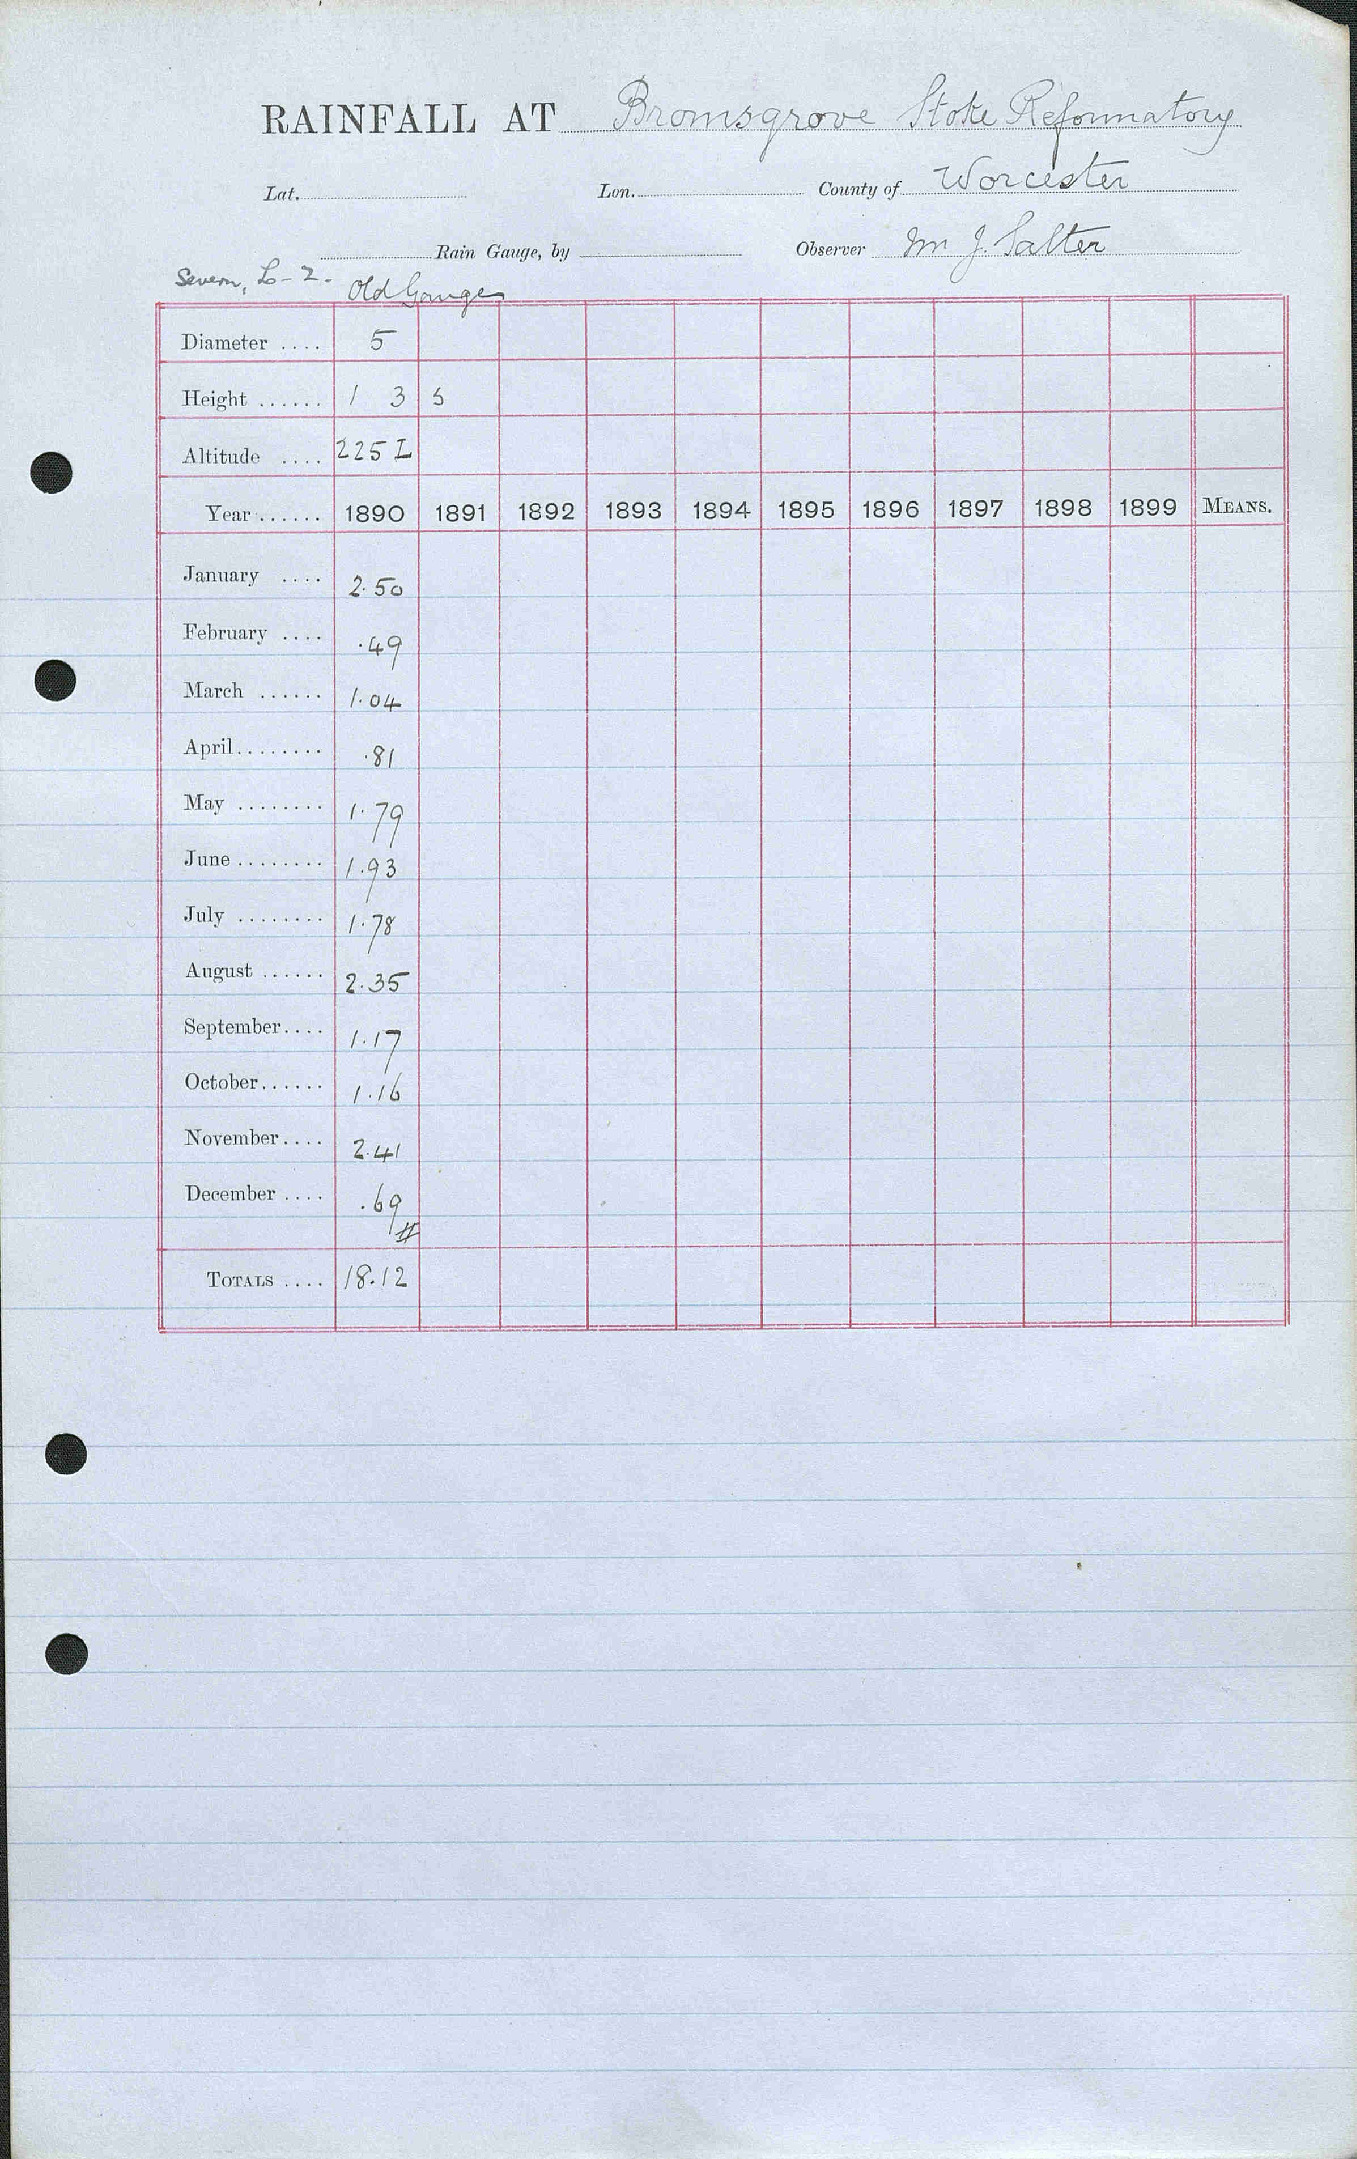 RAINFALL AT Bromsgrove Stoke Reformatory
Lat. Lon. County of Worcester
Rain Gauge, by Observer Mr J. Salter
Severn, L-2. Old Gauge
Diameter .... 5
Height ...... 1 3 5
Altitude .... 225 L
Year ...... 1890 1891 1892 1893 1894 1895 1896 1897 1898 1899 MEANS.
January .... 2.50
February .... .49
March ...... 1.04
April ........ .81
May ........ 1.79
June ........ 1.93
July ........ 1.78
August ...... 2.35
September .... 1.17
October ...... 1.16
November .... 2.41
December .... .69
#
TOTALS .... 18.12